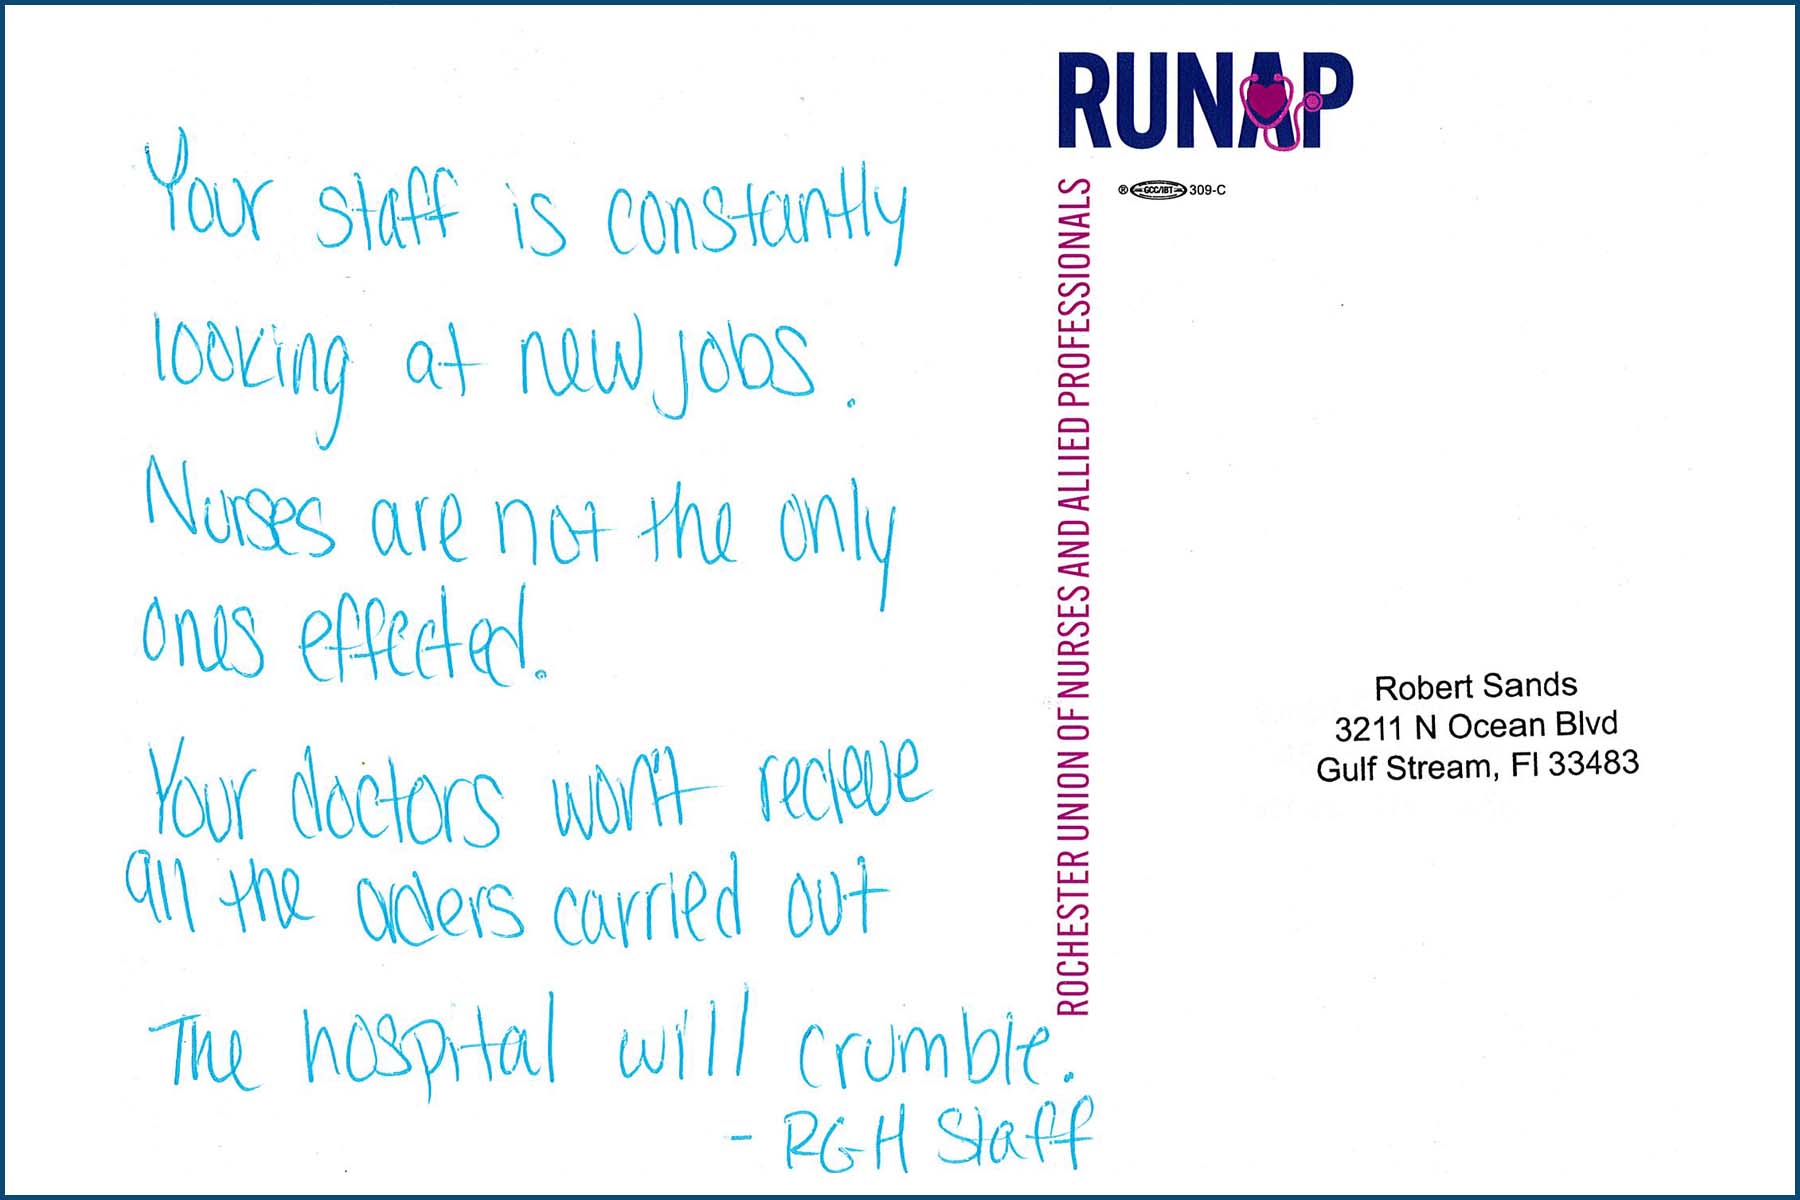 Your staff is constantly
looking at new jobs.
Nurses are not the only
ones effected.
Your doctors won't recieve
all the orders carried out
The hospital will crumble.
- RGH Staff
RUNAP
® GCC/IBT 309-C
ROCHESTER UNION OF NURSES AND ALLIED PROFESSIONALS
Robert Sands
3211 N Ocean Blvd
Gulf Stream, Fl 33483